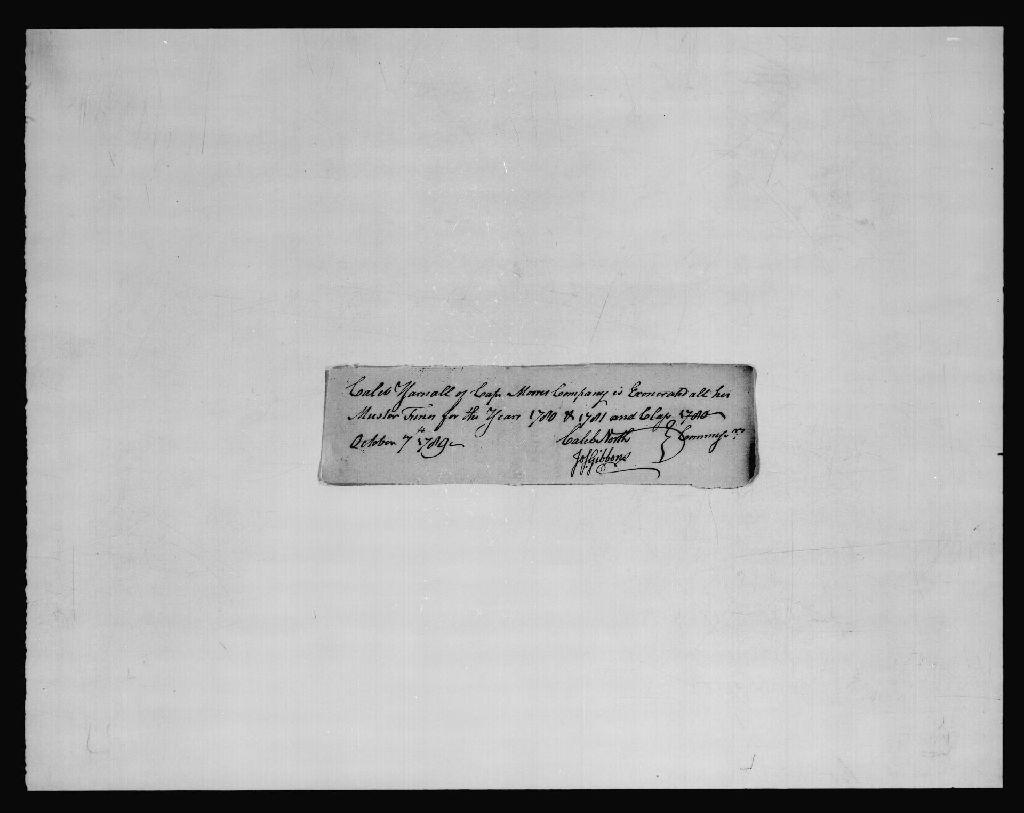 Caleb Yarnall of Capt. Morris Company is Exonerated all his
Muster Fines for the Years 1780 & 1781 and Class 1780
October 7th 1789
Caleb North
Jos Gibbons } Commissrs